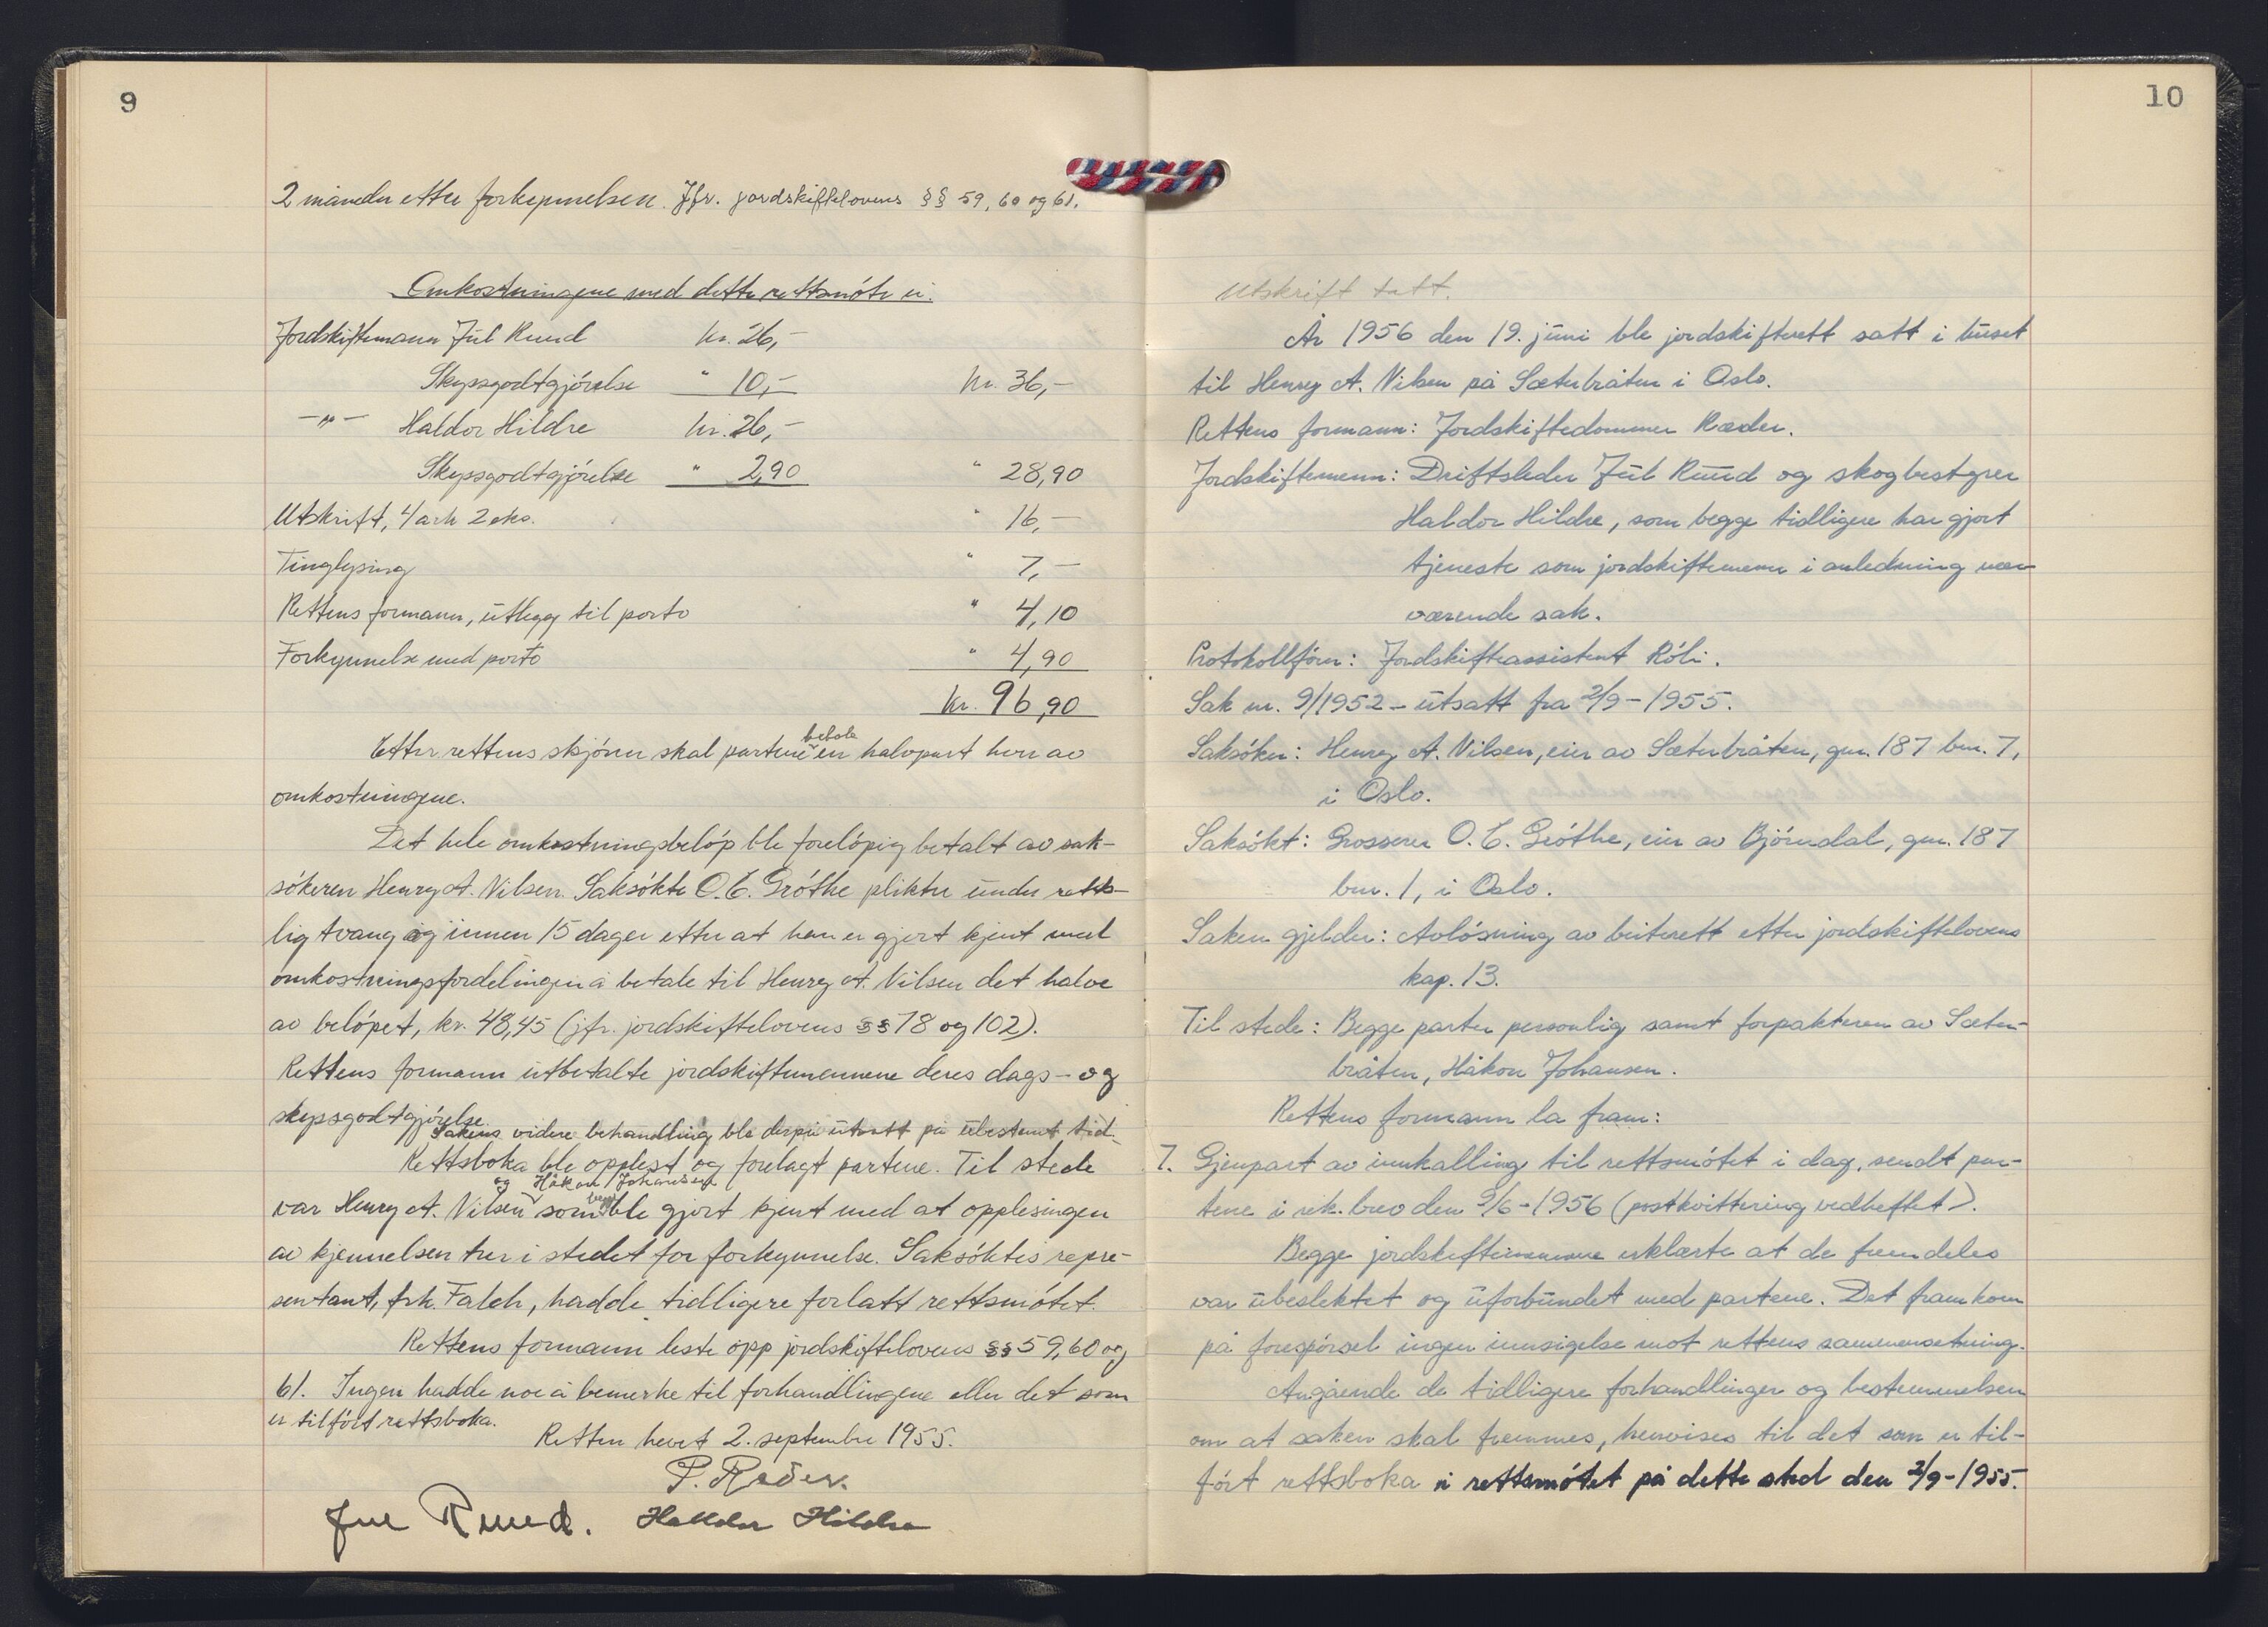 9
2 måneder etter forkynnelsen. Jfr. jordskiftelovens §§ 59, 60 og 61.
Omkostningene med dette rettsmøte er:
Jordskiftemann Jul Ruud kr. 26,-
Skyssgodtgjörelse " 10,- kr. 36,-
-"- Haldor Hildre kr. 26,-
Skyssgodtgjörelse " 2,90 " 28,90
Utskrift, 4 ark 2 eks. " 16,-
Tinglysing " 7,-
Rettens formann, utlegg til porto " 4,10
Forkynnelse med porto " 4,90
kr. 96,90
Etter rettens skjönn skal partene betale en halvpart hver av
omkostningene.
Det hele omkostningsbelöp ble forelöpig betalt av sak-
sökeren Henry A. Nilsen. Saksökte O. C. Gröthe plikter under retts-
lig tvang og innen 15 dager etter at han er gjort kjent med
omkostningsfordelingen å betale til Henry A. Nilsen det halve
av belöpet, kr. 48,45 (jfr. jordskiftelovens §§ 78 og 102).
Rettens formann utbetalte jordskiftemennene deres dags- og
skyssgodtgjörelse.
Sakens videre behandling ble derpå utsatt på ubestemt tid.
Rettsboka ble opplest og forelagt partene. Til stede
var Henry A. Nilsen og Håkon Johansen som begge ble gjort kjent med at opplesingen
av kjennelsen trer i stedet for forkynnelse. Saksöktes repre-
sentant, frk. Falch, hadde tidligere forlatt rettsmötet.
Rettens formann leste opp jordskiftelovens §§ 59, 60 og
61. Ingen hadde noe å bemerke til forhandlingene eller det som
er tilfört rettsboka.
Retten hevet 2. september 1955.
P. Ræder.
Jul Ruud. Haldor Hildre
10
Utskrift tatt.
År 1956 den 19. juni ble jordskifterett satt i huset
til Henry A. Nilsen på Sæterbråten i Oslo.
Rettens formann: Jordskiftedommer Ræder.
Jordskiftemenn: Driftsleder Jul Ruud og skogbestyrer
Haldor Hildre, som begge tidligere har gjort
tjeneste som jordskiftemenn i anledning nær-
værende sak.
Protokollförer: Jordskifteassistent Röli.
Sak nr. 9/1952 - utsatt fra 2/9-1955.
Saksöker: Henry A. Nilsen, eier av Sæterbråten, gnr. 187 bnr. 7,
i Oslo.
Saksökt: Grosserer O. C. Gröthe, eier av Björndal, gnr. 187
bnr. 1, i Oslo.
Saken gjelder: Avlösning av beiterett etter jordskiftelovens
kap. 13.
Til stede: Begge parter personlig samt forpakteren av Sæter-
bråten, Håkon Johansen.
Rettens formann la fram:
7. Gjenpart av innkalling til rettsmötet i dag, sendt par-
tene i rek. brev den 9/6-1956 (postkvittering vedheftet).
Begge jordskiftemennene erklærte at de fremdeles
var ubeslektet og uforbundet med partene. Det framkom
på forespörsel ingen innsigelse mot rettens sammensetning.
Angående de tidligere forhandlinger og bestemmelsen
om at saken skal fremmes, henvises til det som er til-
fört rettsboka i rettsmötet på dette sted den 2/9-1955.